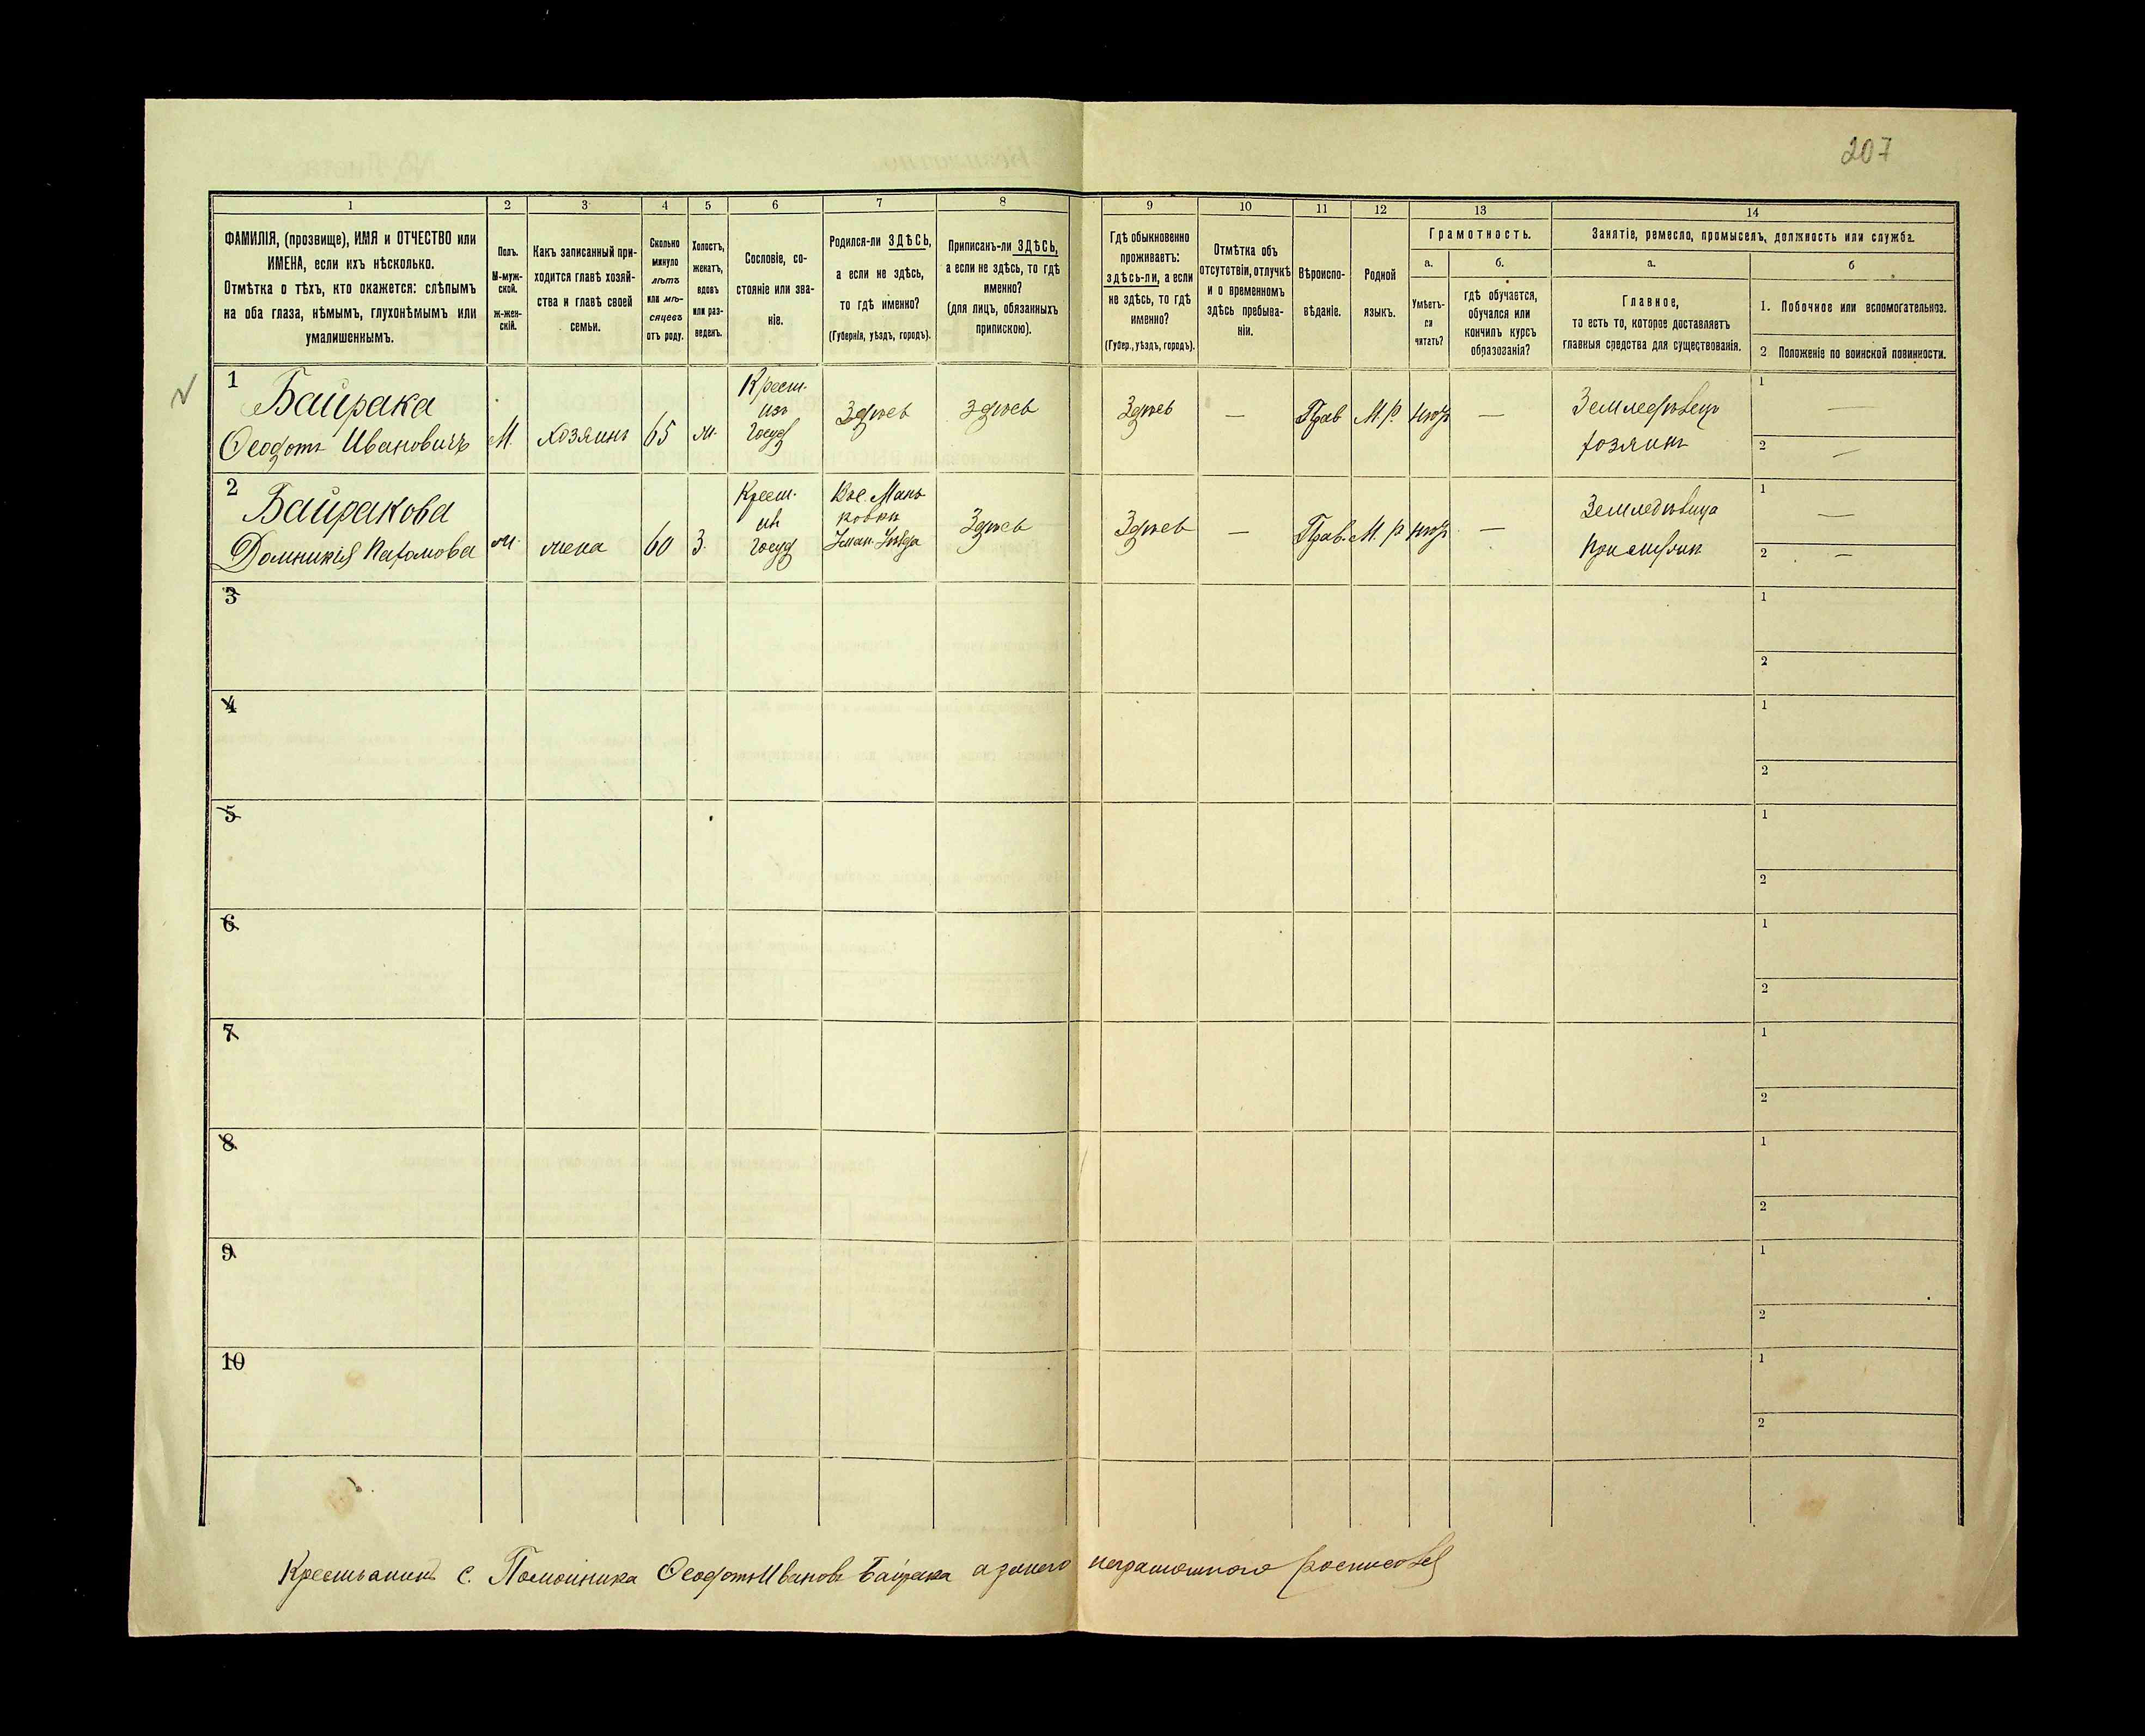 207
1 2 3 4 5 6 7 8 9 10 11 12 13 14
ФАМИЛІЯ, (прозвище), ИМЯ и ОТЧЕСТВО или
ИМЕНА, если ихъ нѣсколько.
Отмѣтка о тѣхъ, кто окажется: слѣпымъ
на оба глаза, нѣмымъ, глухонѣмымъ или
умалишеннымъ.
Полъ.
М-муж-
ской.
ж-жен-
скій.
Какъ записанный при-
ходится главѣ хозяй-
ства и главѣ своей
семьи.
Сколько
минуло
лѣтъ
или мѣ-
сяцевъ
отъ роду.
Холостъ,
женатъ,
вдовъ
или раз-
веденъ.
Сословіе, со-
стояніе или зва-
ніе.
Родился-ли ЗДѢСЬ,
а если не здѣсь,
то гдѣ именно?
(Губернія, уѣздъ, городъ).
Приписанъ-ли ЗДѢСЬ,
а если не здѣсь, то гдѣ
именно?
(для лицъ, обязанныхъ
припискою).
Гдѣ обыкновенно
проживаетъ:
здѣсь-ли, а если
не здѣсь, то гдѣ
именно?
(Губер., уѣздъ, городъ).
Отмѣтка объ
отсутствіи, отлучкѣ
и о временномъ
здѣсь пребыва-
ніи.
Вѣроиспо-
вѣданіе.
Родной
языкъ.
Грамотность.
а.
Умѣетъ-
ли
читать?
б.
гдѣ обучается,
обучался или
кончилъ курсъ
образованія?
Занятіе, ремесло, промыселъ, должность или служба.
а.
Главное,
то есть то, которое доставляетъ
главныя средства для существованія.
б
1. Побочное или вспомогательное.
2 Положеніе по воинской повинности.
1
Байрака
Ѳеодотъ Ивановичъ
М.
хозяинъ
65
ж.
Крест.
изъ
Госуд
Здѣсь
здѣсь
Здѣсь
—
Прав
М.р.
—
Земледѣлецъ
хозяинъ
1 —
2 —
2
Байракова
Домникія
ж.
жена
60
З.
Крест.
изъ
Госуд
Здѣсь
Здѣсь
—
Прав.
М. р
—
1 —
2 —
3
1
2
4
1
2
5
1
2
6
1
2
7
1
2
8
1
2
9
1
2
10
1
2
Крестьянинъ с. Ѳеодотъ Ивановъ Байрака а за него неграмотнаго